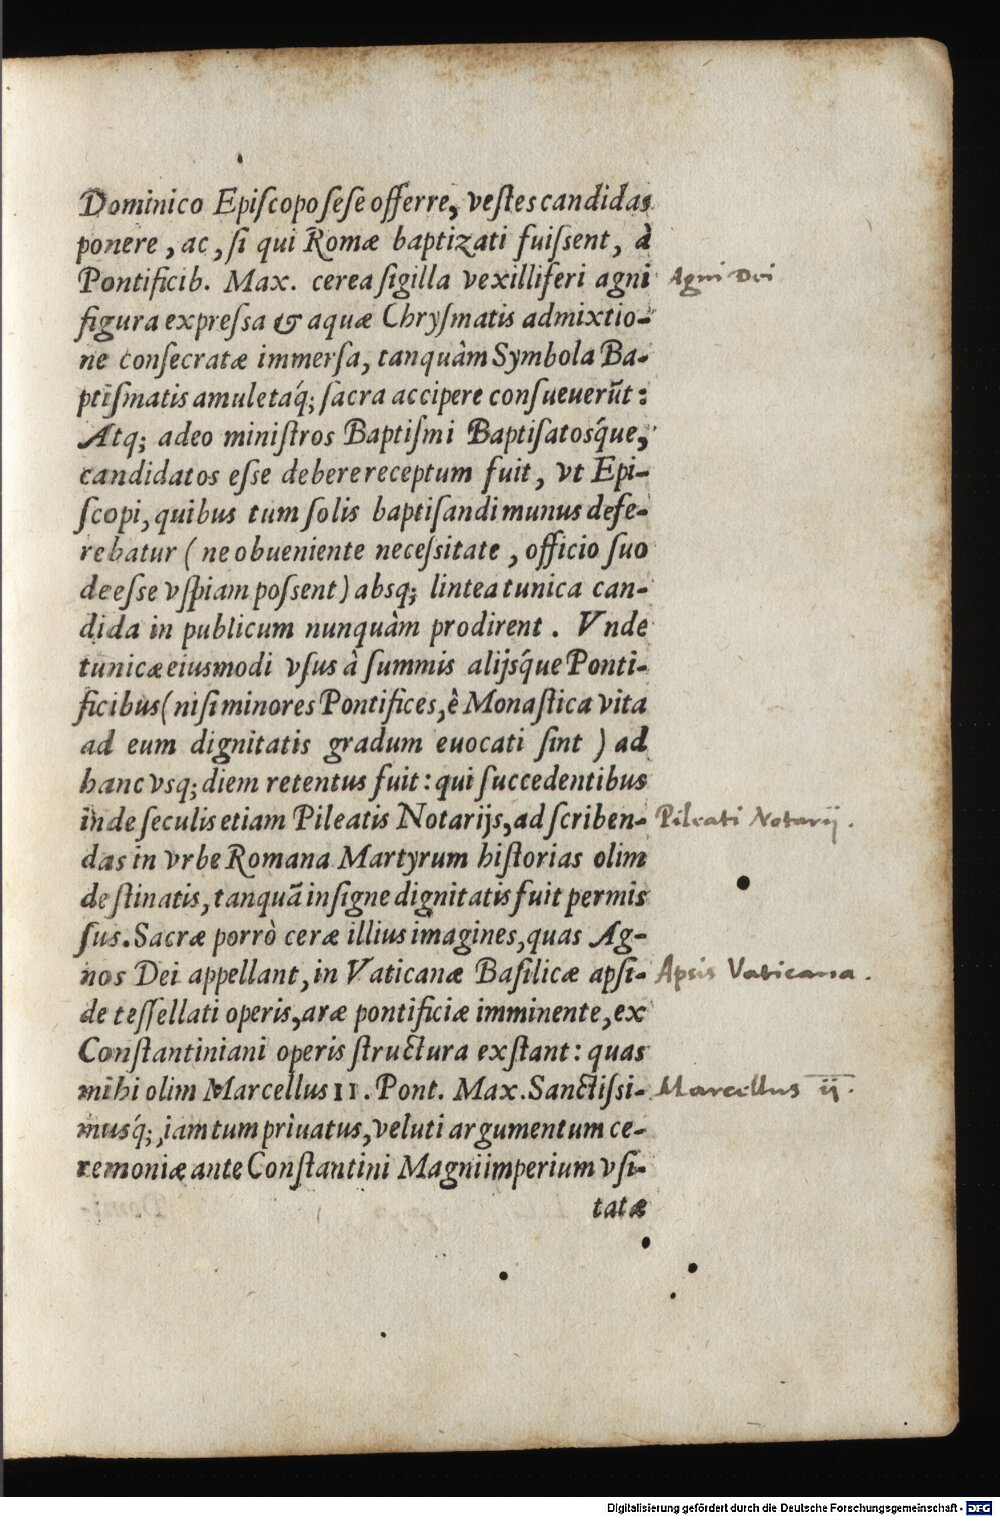 Dominico Episcopo sese offerre, vestes candidas
ponere, ac, si qui Romæ baptizati fuissent, à
Pontificib. Max. cerea sigilla vexilliferi agni
Agni Dei
figura expressa & aquæ Chrysmatis admixtio-
ne consecratæ immersa, tanquàm Symbola Ba-
ptismatis amuletaq́; sacra accipere consueuerũt:
Atq; adeo ministros Baptismi Baptisatosq́ue,
candidatos esse debere receptum fuit, vt Epi-
scopi, quibus tum solis baptisandi munus defe-
rebatur (ne obueniente necessitate, officio suo
deesse vspiam possent) absq; lintea tunica can-
dida in publicum nunquàm prodirent. Vnde
tunicæ eiusmodi vsus à summis alijsq́ue Ponti-
ficibus (nisi minores Pontifices, è Monastica vita
ad eum dignitatis gradum euocati sint) ad
hanc vsq; diem retentus fuit: qui succedentibus
inde seculis etiam Pileatis Notarijs, ad scriben-
Pileati Notarij.
das in vrbe Romana Martyrum historias olim
destinatis, tanquã insigne dignitatis fuit permis
sus. Sacræ porrò ceræ illius imagines, quas Ag-
nos Dei appellant, in Vaticanæ Basilicæ apsi-
Apsis Vaticana.
de tessellati operis, aræ pontificiæ imminente, ex
Constantiniani operis structura exstant: quas
mihi olim Marcellus II. Pont. Max. Sanctissi-
Marcellus ij.
musq́;, iam tum priuatus, veluti argumentum ce-
remoniæ ante Constantini Magni imperium vsi-
tatæ
Digitalisierung gefördert durch die Deutsche Forschungsgemeinschaft - DFG